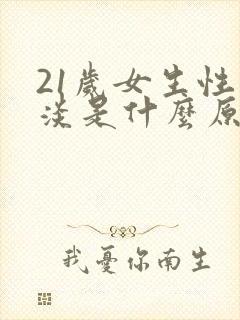 21歲女生性
淡是什麼原
我憂你南生